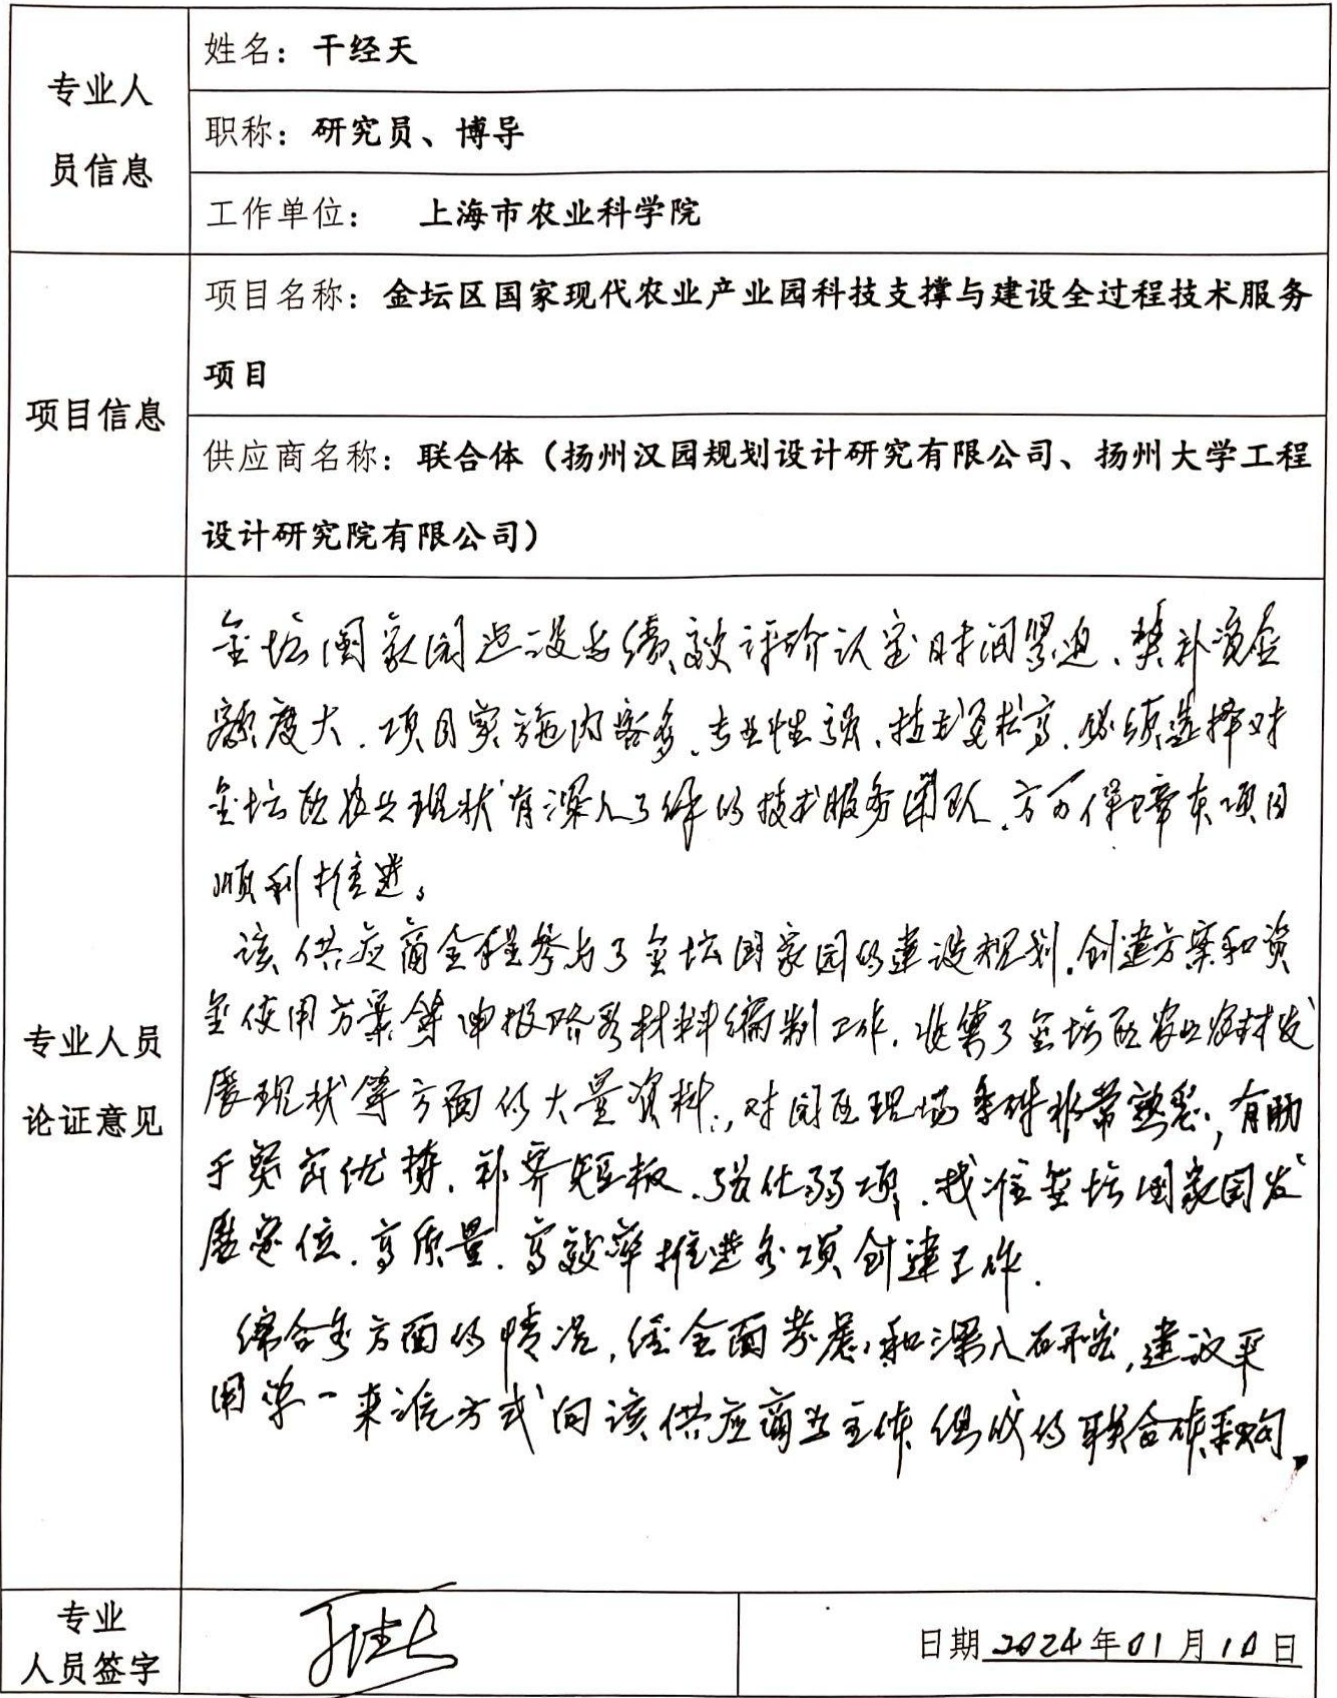 专业人
员信息
姓名：干经天
职称：研究员、博导
工作单位： 上海市农业科学院
项目信息
项目名称：金坛区国家现代农业产业园科技支撑与建设全过程技术服务
项目
供应商名称：联合体（扬州汉园规划设计研究有限公司、扬州大学工程
设计研究院有限公司）
专业人员
论证意见
金坛国家园建设与绩效评价认定时间紧迫、奖补资金
额度大、项目实施内容多、专业性强、技术要求高，必须选择对
金坛区农业现状有深入了解的技术服务团队，方可保障本项目
顺利推进。
该供应商全程参与了金坛国家园的建设规划、创建方案和资
金使用方案等申报路演材料编制工作，收集了金坛区农业农村发
展现状等方面的大量资料，对园区现场条件非常熟悉，有助
于突出优势、补齐短板、强化弱项，找准金坛国家园发
展定位，高质量、高效率推进各项创建工作。
综合各方面的情况，经全面考虑和深入研究，建议采
用单一来源方式向该供应商为主体组成的联合体采购。
专业
人员签字
干经天
日期 2024年01月10日